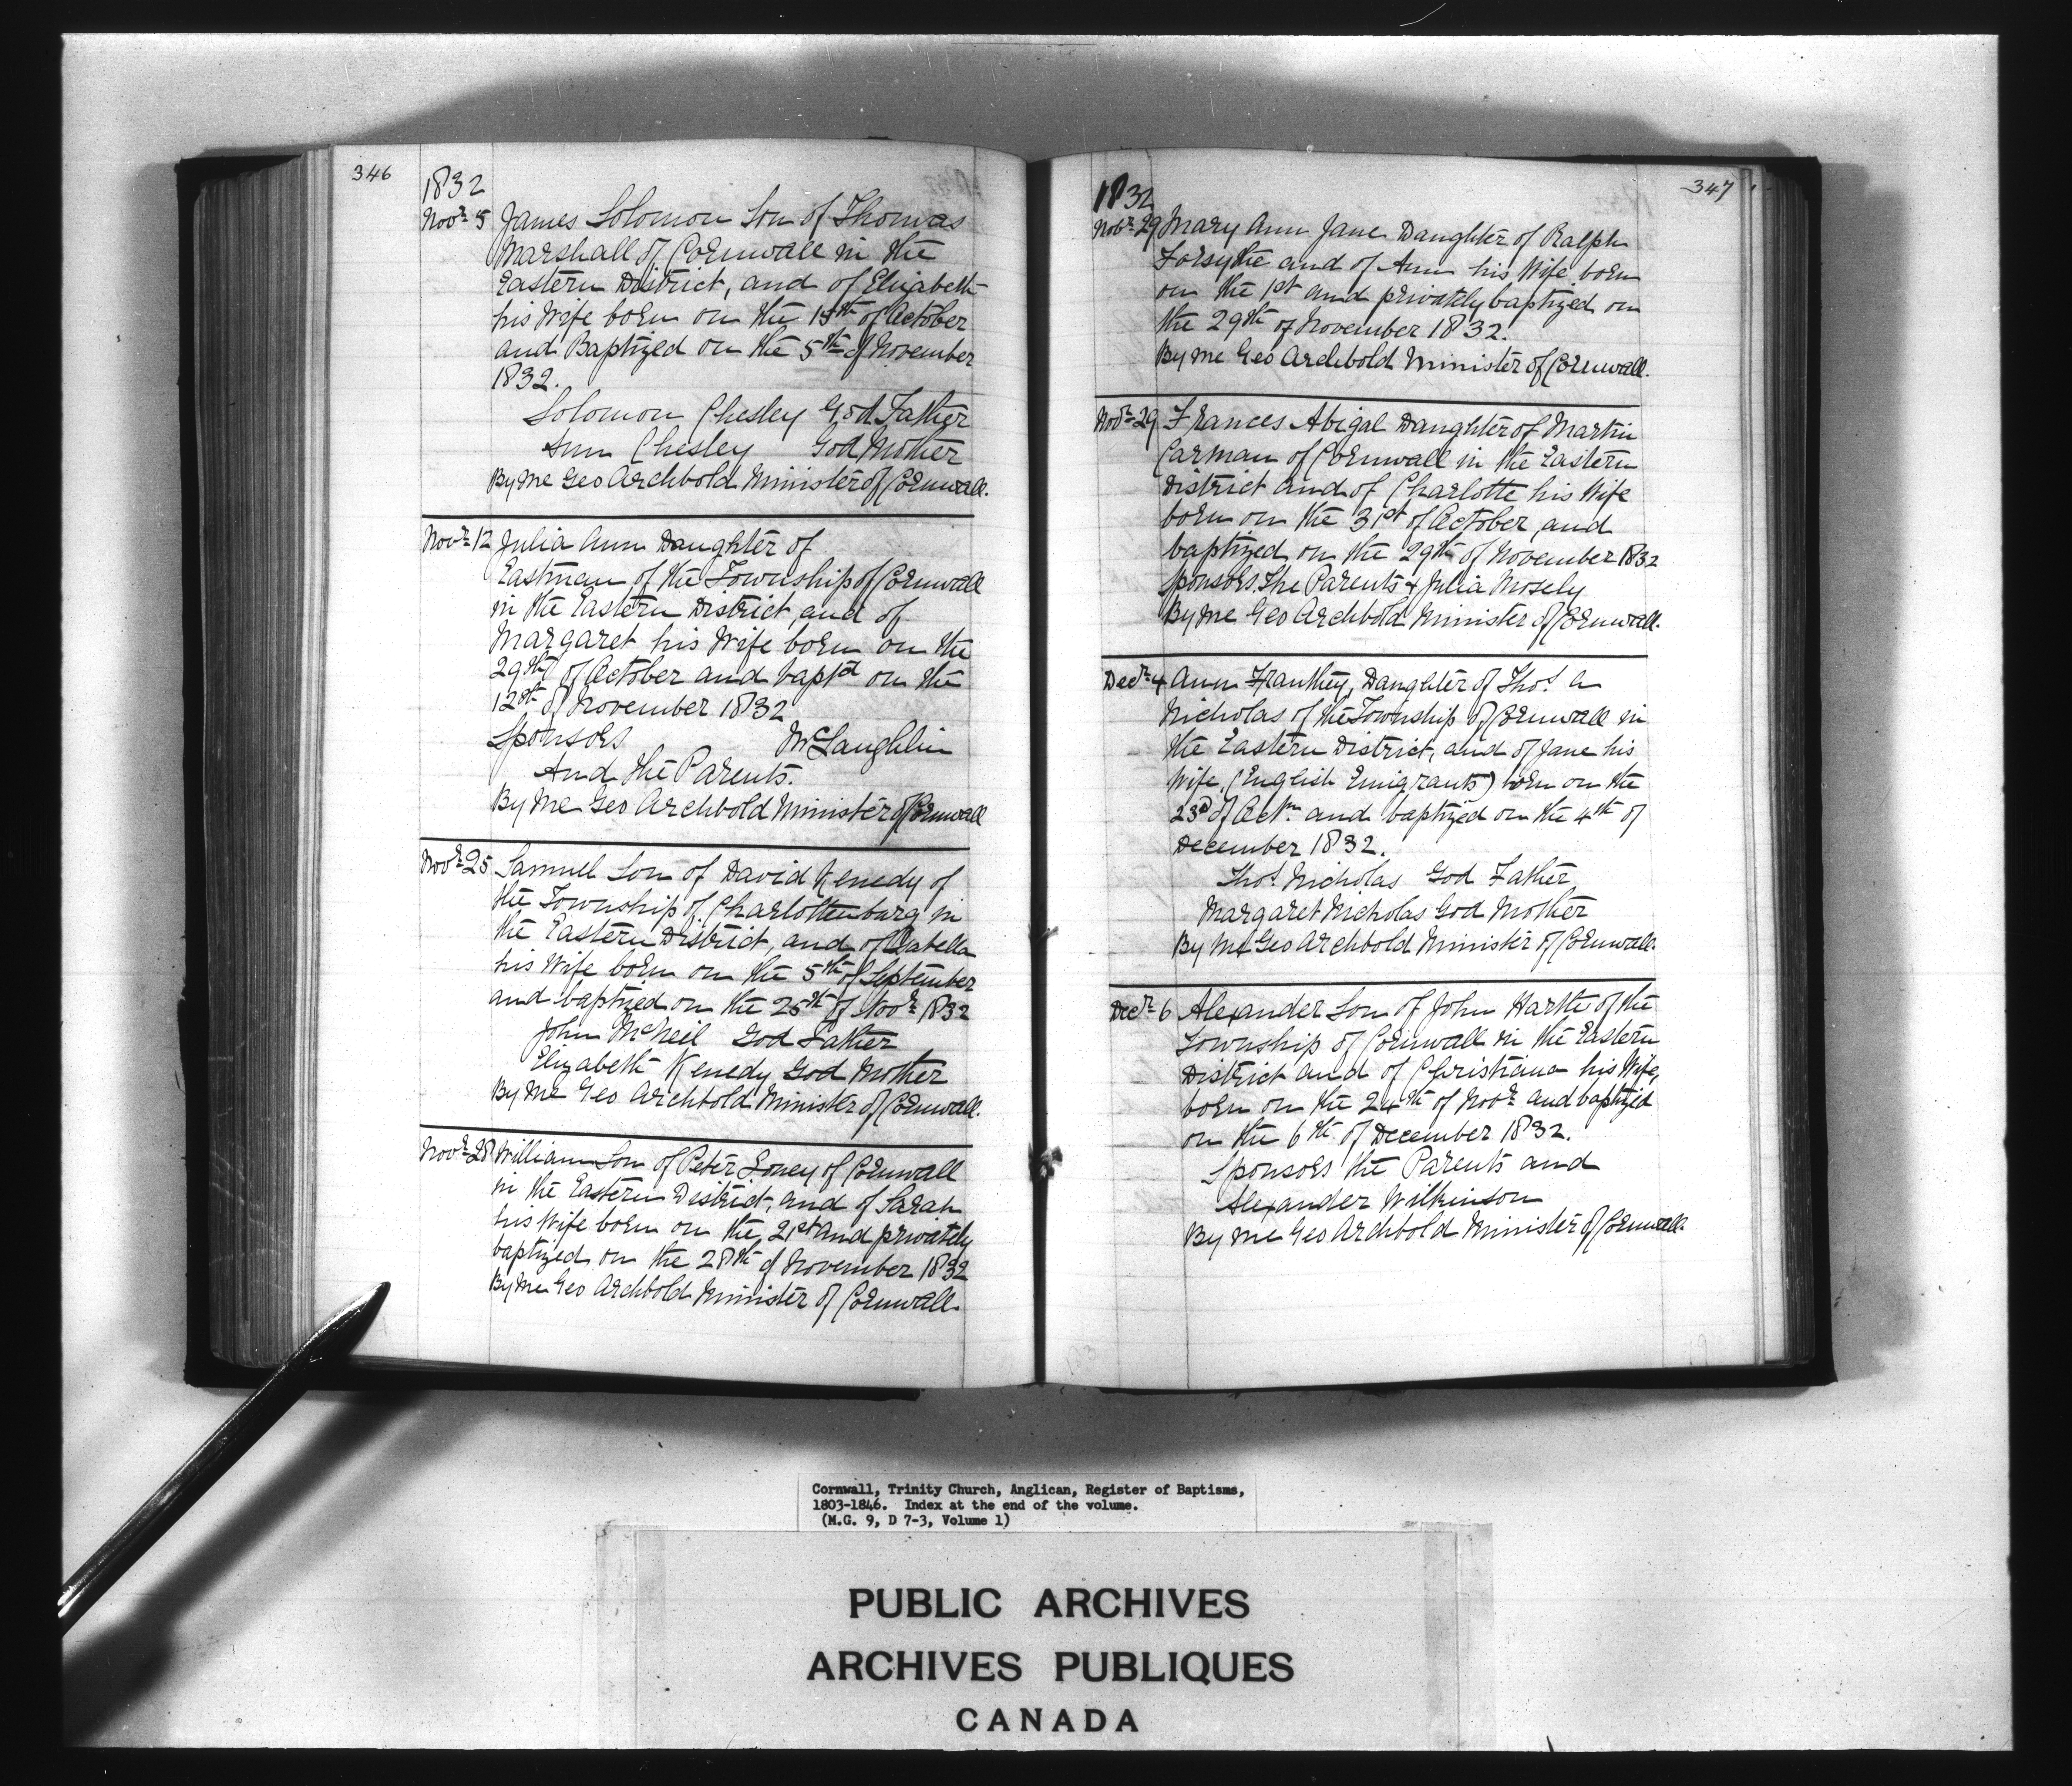 346
1832
Novr 5 James Solomon Son of Thomas
Marshall of Cornwall in the
Eastern District, and of Elizabeth
his Wife born on the 15th of October
and Baptized on the 5th of November
1832.
Solomon Chesley God Father
Ann Chesley God Mother
By me Geo Archbold Minister of Cornwall.
Novr 12 Julia Ann Daughter of
Eastman of the Township of Cornwall
in the Eastern District, and of
Margaret his Wife born on the
29th of October and baptd on the
12th of November 1832
Sponsors McLaughlin
And the Parents.
By Me Geo Archbold Minister of Cornwall
Novr 25 Samuel Son of David Kenedy of
the Township of Charlottenburg in
the Eastern District, and of Isabella
his Wife born on the 5th of September
and baptized on the 25th of Novr 1832
John McNeil God Father
Elizabeth Kenedy God Mother
By Me Geo Archbold Minister of Cornwall.
Novr 28 William Son of Peter Loney of Cornwall
in the Eastern District, and of Sarah
his Wife born on the 21st and privately
baptized on the 28th of November 1832
By Me Geo Archbold Minister of Cornwall.
347
1832
Novr 29 Mary Ann Jane Daughter of Ralph
Forsythe and of Ann his Wife born
on the 1st and privately baptized on
the 29th of November 1832.
By me Geo Archbold Minister of Cornwall.
Novr 29 Frances Abigal Daughter of Martin
Carman of Cornwall in the Eastern
District and of Charlotte his Wife
born on the 31st of October, and
baptized on the 29th of November 1832
Sponsors. The Parents & Julia Mosely
By Me Geo Archbold Minister of Cornwall.
Decr 4 Ann Daughter of Thos. A
Nicholas of the Township of Cornwall in
the Eastern District, and of Jane his
Wife, (English Emigrants) born on the
23d of and baptized on the 4th of
December 1832.
Thos. Nicholas God Father
Margaret Nicholas God Mother
By Me Geo Archbold Minister of Cornwall.
Decr 6 Alexander Son of John Harkte of the
Township of Cornwall in the Eastern
District and of Christiana his Wife,
born on the 24th of Novr and baptized
on the 6th of December 1832.
Sponsors the Parents and
Alexander Wilkinson
By me Geo Archbold Minister of Cornwall.
Cornwall, Trinity Church, Anglican, Register of Baptisms,
1803-1846. Index at the end of the volume.
(M.G. 9, D 7-3, Volume 1)
PUBLIC ARCHIVES
ARCHIVES PUBLIQUES
CANADA